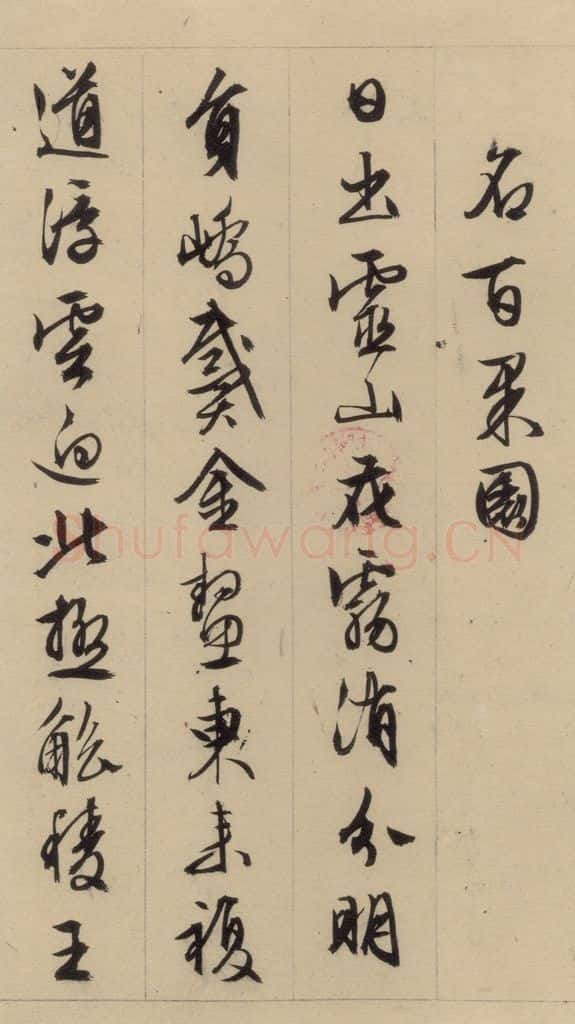 名百果園
日出靈山花霧消分明
員嶠戴金鼇東來複
道浮雲逈北極觚稜王
Shufawang.CN